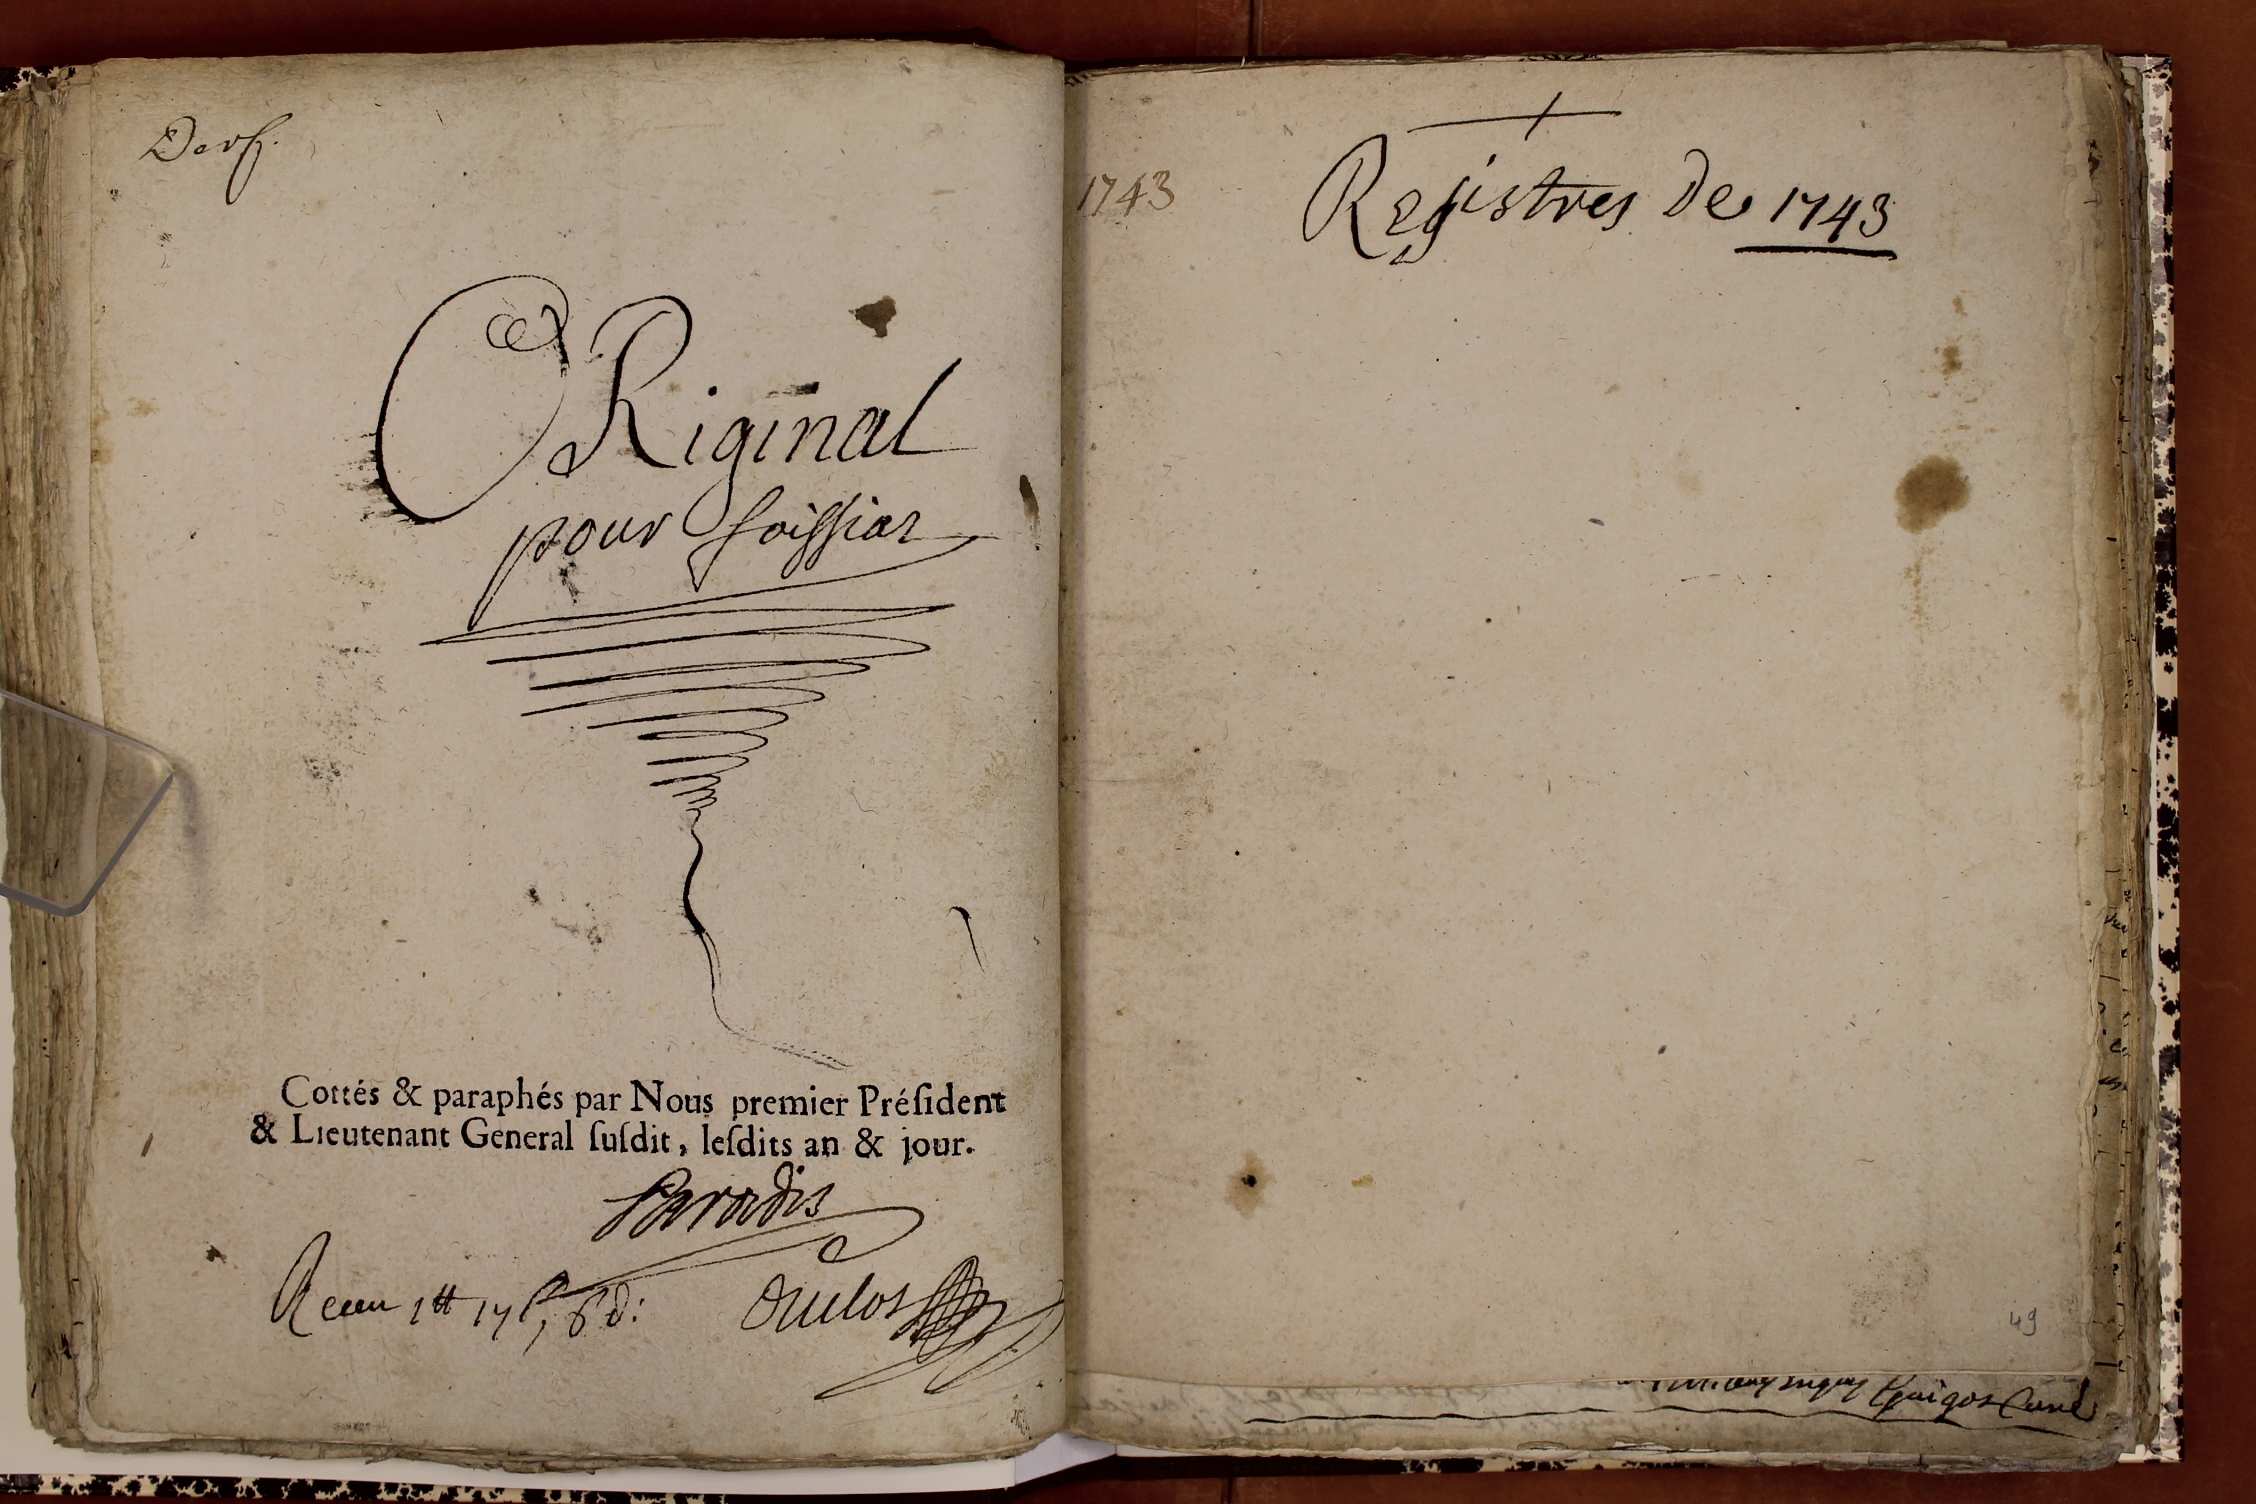 ORiginal
pour Soissiat
Cottés & paraphés par Nous premier Préſident
& Lieutenant General ſuſdit, leſdits an & jour.
Paradis
Receu 1ᵗᵗ 17ˢ, 8ᵈ:
1743
Registres De 1743
49
Curé